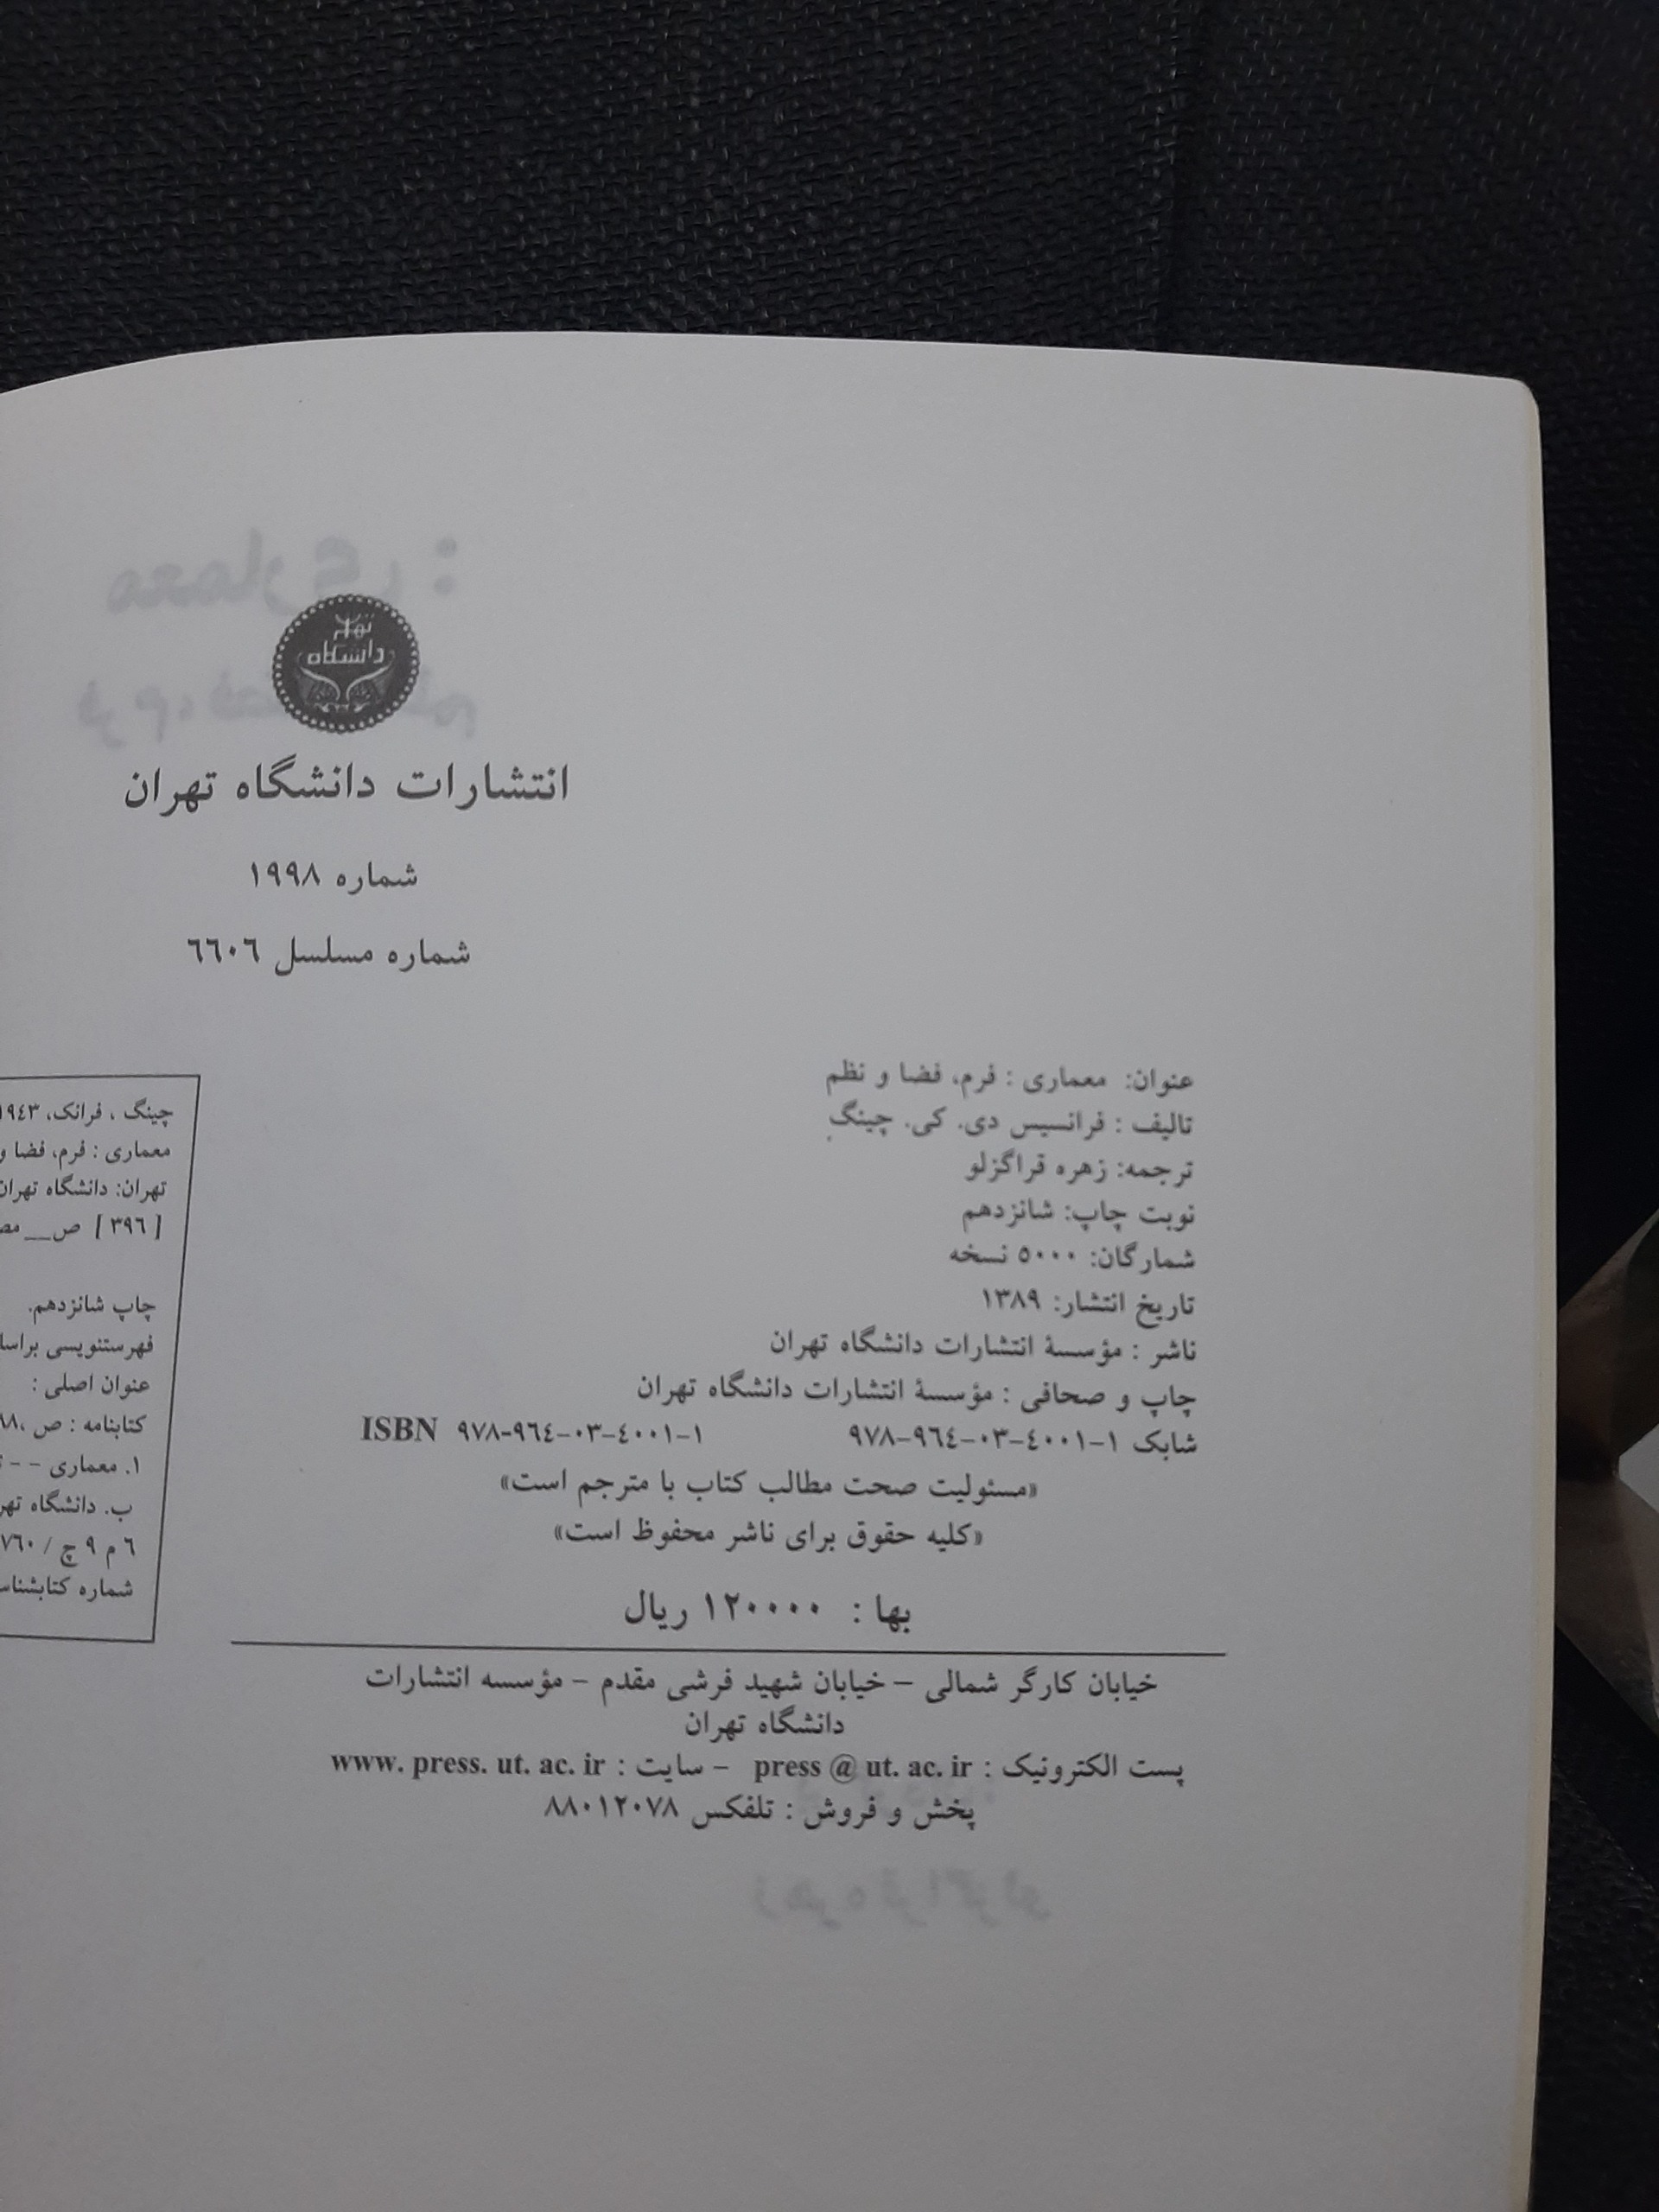 دانشگاه تهران
انتشارات دانشگاه تهران
شماره ۱۹۹۸
شماره مسلسل ٦٦٠٦
عنوان: معماری : فرم، فضا و نظم
تالیف : فرانسیس دی. کی. چینگ
ترجمه: زهره قراگزلو
نوبت چاپ: شانزدهم
شمارگان: ٥٠٠٠ نسخه
تاریخ انتشار: ۱۳۸۹
ناشر : مؤسسهٔ انتشارات دانشگاه تهران
چاپ و صحافی : مؤسسهٔ انتشارات دانشگاه تهران
شابک ۱–٤٠٠١–٠٣–٩٦٤–٩٧٨ ISBN ٩٧٨-٩٦٤–٠٣–٤٠٠١–١
«مسئولیت صحت مطالب کتاب با مترجم است»
«کلیه حقوق برای ناشر محفوظ است»
بها : ۱۲۰۰۰۰ ریال
خیابان کارگر شمالی – خیابان شهید فرشی مقدم – مؤسسه انتشارات
دانشگاه تهران
پست الکترونیک : press @ ut. ac. ir – سایت : www. press. ut. ac. ir
پخش و فروش : تلفکس ۸۸۰۱۲۰۷۸
چینگ ، فرانک، ۱۹٤۳
معماری : فرم، فضا و
تهران: دانشگاه تهران
[ ۳۹٦ ] ص__
چاپ شانزدهم.
فهرستنویسی
عنوان اصلی :
کتابنامه : ص
۱. معماری - -
ب. دانشگاه
٦ م ۹ چ /
شماره